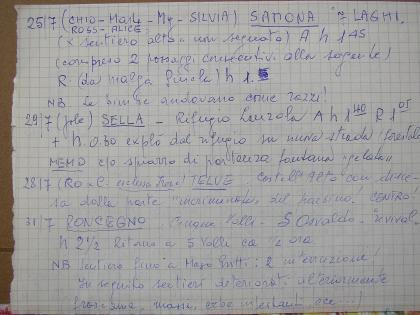 25/7 (CHIO - Mark - My - SILVIA) SAMONA ≈ LAGHI.
ROSS - ALICE
(x sentiero alto - non segnato) A h 1 45
(compreso 2 passaggi consecutivi alla sorgente)
R (da malga h 1.
NB Le bimbe andavano come razzi!
29/7 (solo) SELLA - Rifugio A h 1 40 R 1 05
+ h 0.30 explo dal rifugio su nuova strada forestale
MEMO c/o spiazzo di partenza fontana "pelata"
28/7 (Ro + C. TELVE Castello Alto con
dalla parte del CENTRO!
31/7 RONCEGNO Cinque Valli - S Osvaldo - revival
h 2 1/2 Ritorno a 5 Valli ca 2 ora
NB Sentiero fino a Maso : 2
In seguito sentieri deteriorati ulteriormente
massi, erbe infestanti ecc...)